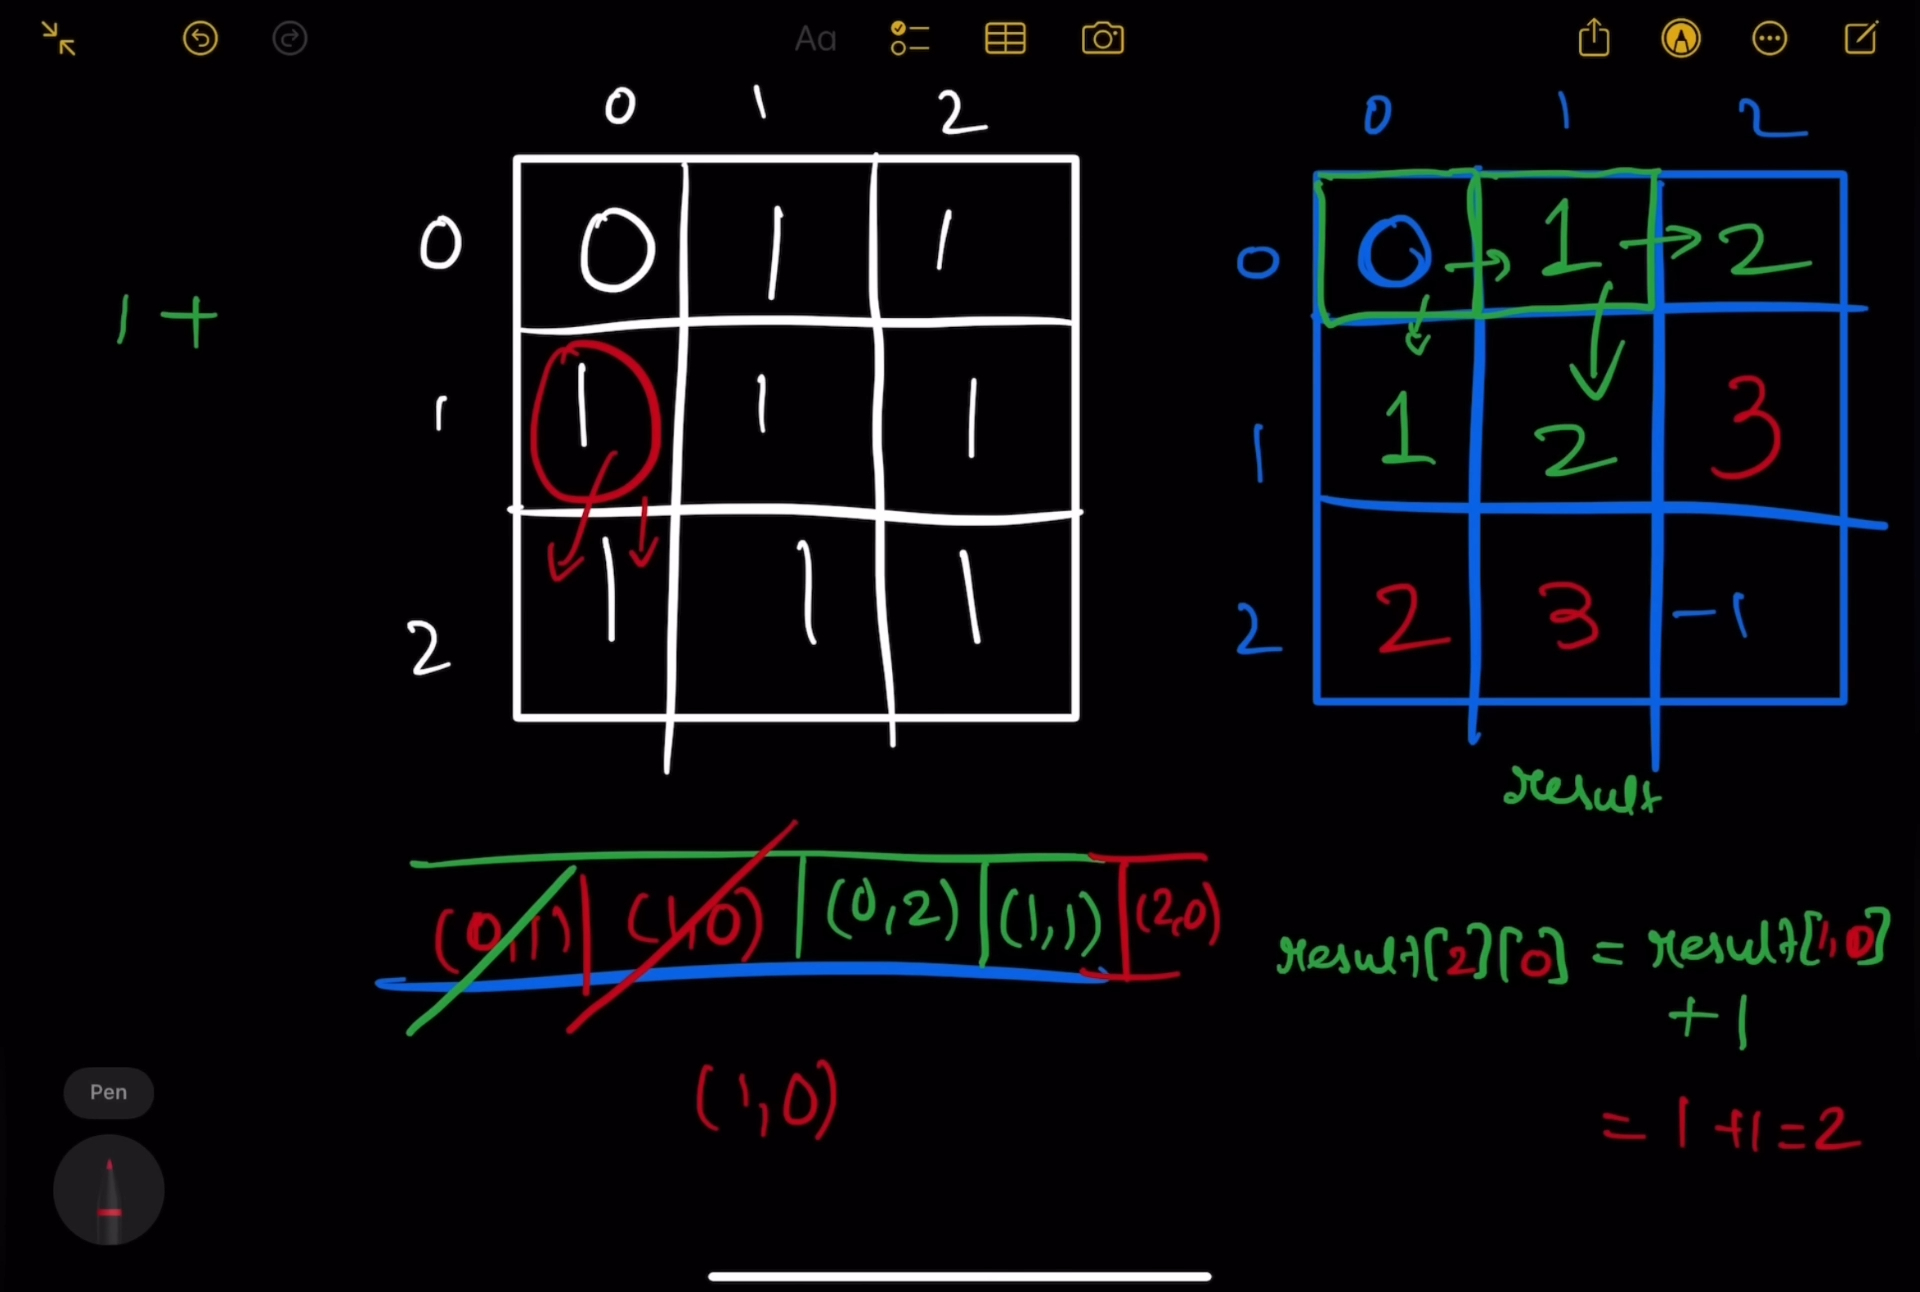 Aa
0 1 2
0 0 1 1
1 1 1 1
2 1 1 1
1 +
0 1 2
0 0 1 2
1 1 2 3
2 2 3 -1
result
(0,1) (1,0) (0,2) (1,1) (2,0)
(1,0)
result[2][0] = result[1,0]
+ 1
= 1 + 1 = 2
Pen